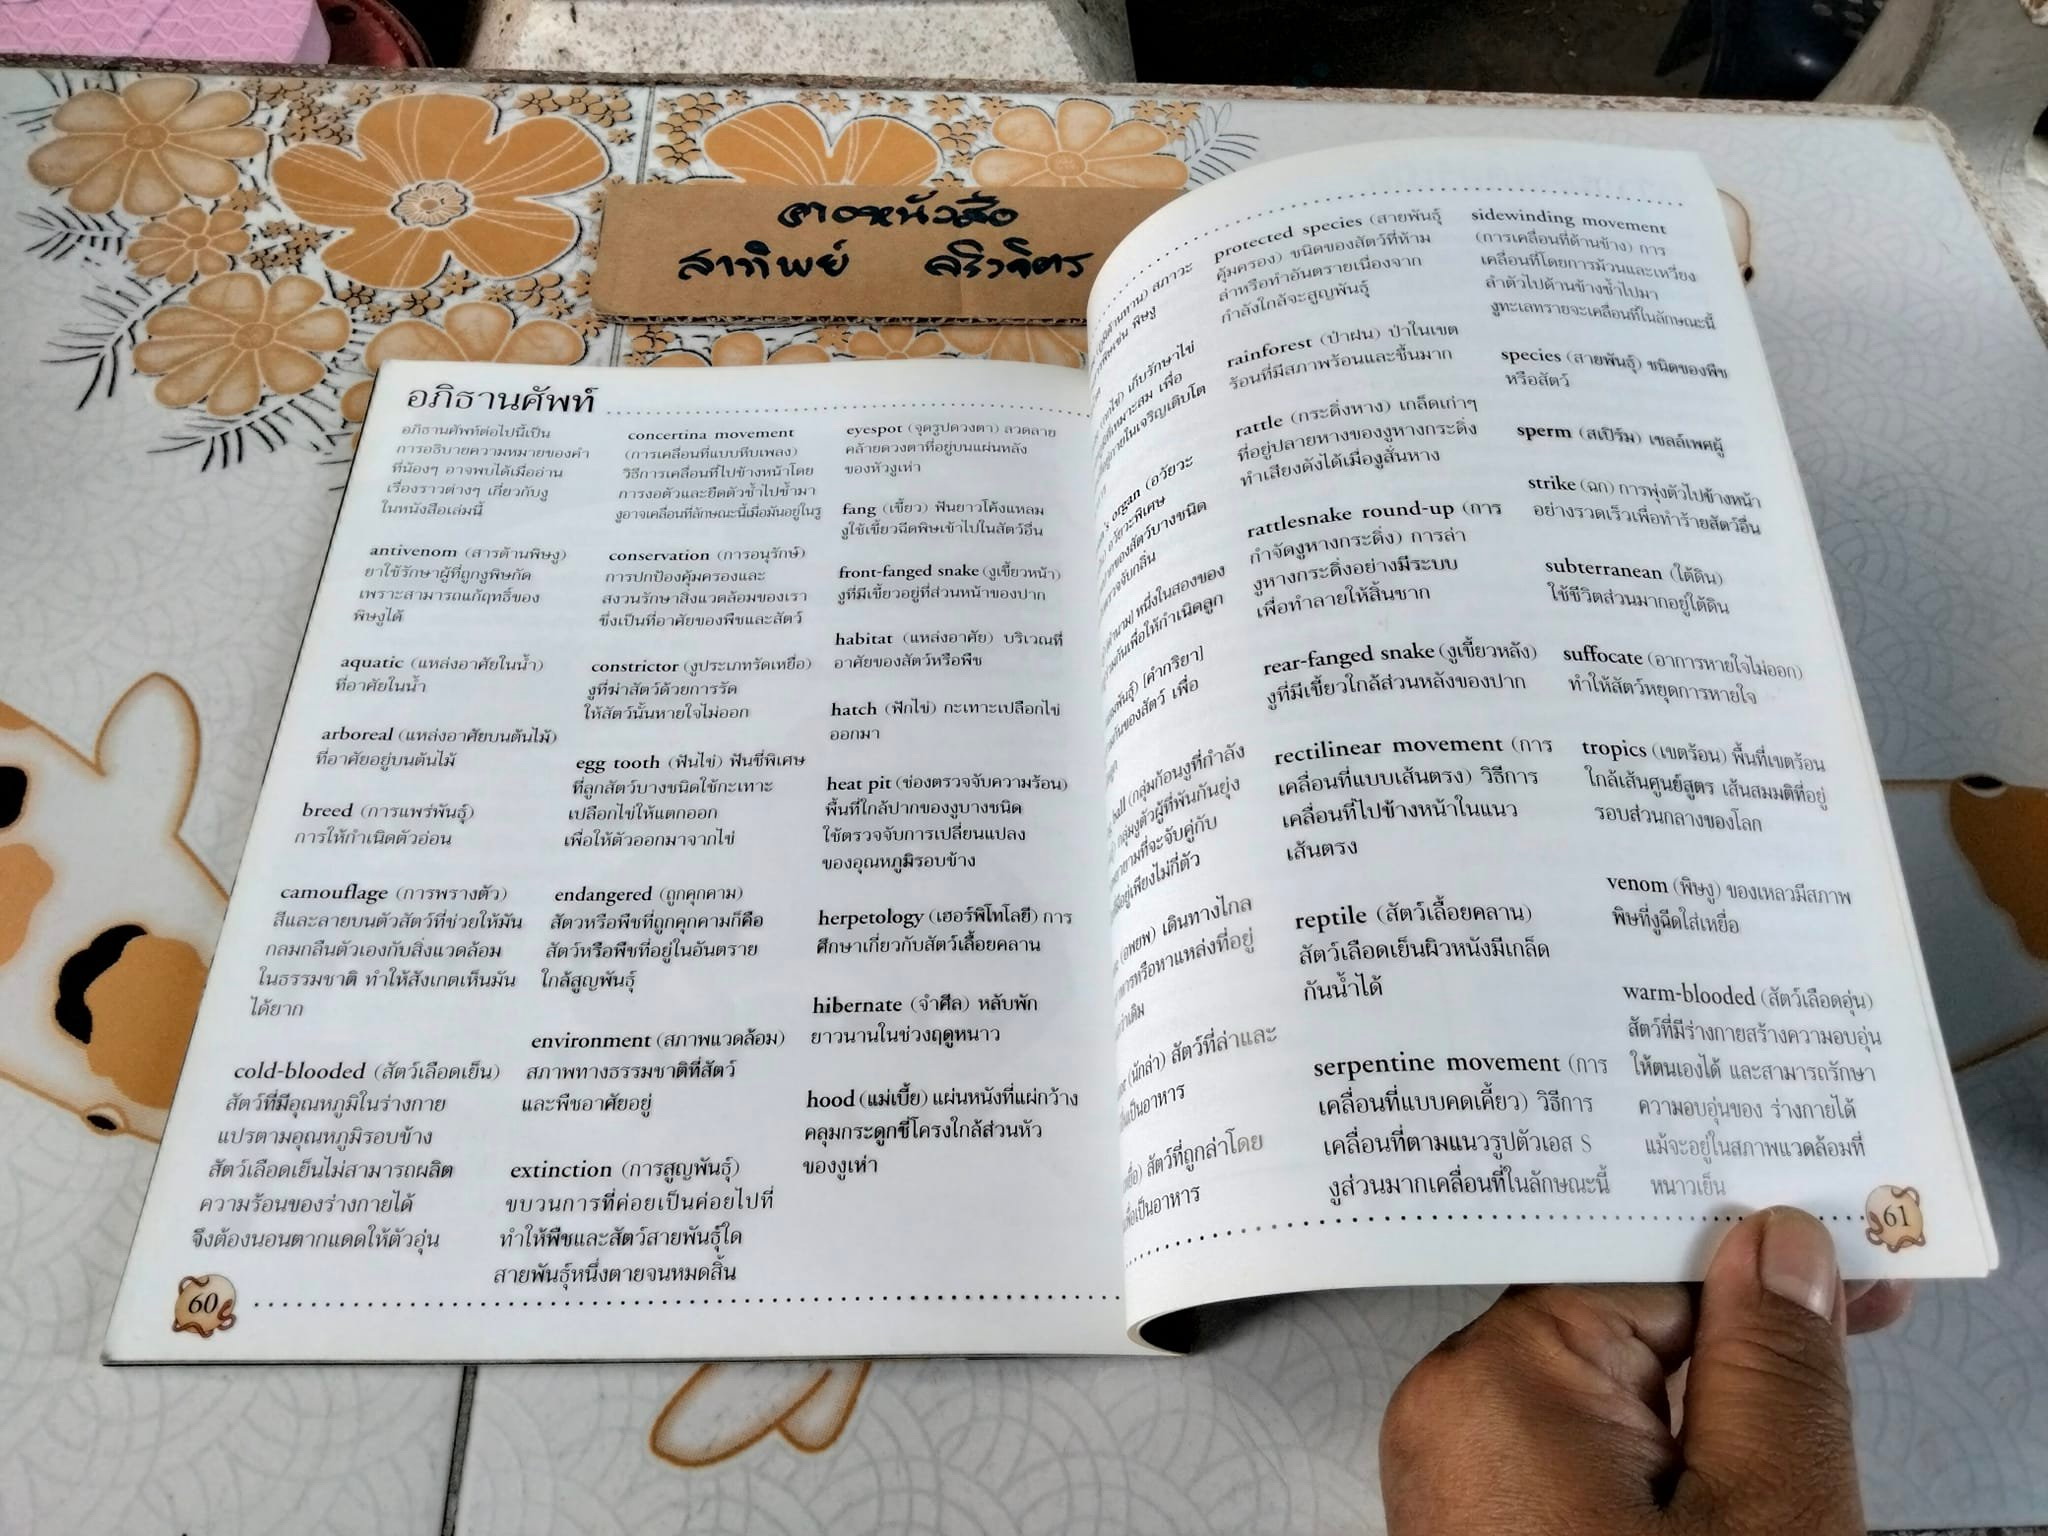 สาทิพย์
อภิธานศัพท์
อภิธานศัพท์ต่อไปนี้เป็น
การอธิบายความหมายของคำ
ที่น้องๆ อาจพบได้เมื่ออ่าน
เรื่องราวต่างๆ เกี่ยวกับงู
ในหนังสือเล่มนี้
antivenom (สารต้านพิษงู)
ยาใช้รักษาผู้ที่ถูกงูพิษกัด
เพราะสามารถแก้ฤทธิ์ของ
พิษงูได้
aquatic (แหล่งอาศัยในน้ำ)
ที่อาศัยในน้ำ
arboreal (แหล่งอาศัยบนต้นไม้)
ที่อาศัยอยู่บนต้นไม้
breed (การแพร่พันธุ์)
การให้กำเนิดตัวอ่อน
camouflage (การพรางตัว)
สีและลายบนตัวสัตว์ที่ช่วยให้มัน
กลมกลืนตัวเองกับสิ่งแวดล้อม
ในธรรมชาติ ทำให้สังเกตเห็นมัน
ได้ยาก
cold-blooded (สัตว์เลือดเย็น)
สัตว์ที่มีอุณหภูมิในร่างกาย
แปรตามอุณหภูมิรอบข้าง
สัตว์เลือดเย็นไม่สามารถผลิต
ความร้อนของร่างกายได้
จึงต้องนอนตากแดดให้ตัวอุ่น
concertina movement
(การเคลื่อนที่แบบหีบเพลง)
วิธีการเคลื่อนที่ไปข้างหน้าโดย
การงอตัวและยืดตัวซ้ำไปซ้ำมา
งูอาจเคลื่อนที่ลักษณะนี้เมื่อมันอยู่ในรู
conservation (การอนุรักษ์)
การปกป้องคุ้มครองและ
สงวนรักษาสิ่งแวดล้อมของเรา
ซึ่งเป็นที่อาศัยของพืชและสัตว์
constrictor (งูประเภทรัดเหยื่อ)
งูที่ฆ่าสัตว์ด้วยการรัด
ให้สัตว์นั้นหายใจไม่ออก
egg tooth (ฟันไข่) ฟันซี่พิเศษ
ที่ลูกสัตว์บางชนิดใช้กะเทาะ
เปลือกไข่ให้แตกออก
เพื่อให้ตัวออกมาจากไข่
endangered (ถูกคุกคาม)
สัตว์หรือพืชที่ถูกคุกคามก็คือ
สัตว์หรือพืชที่อยู่ในอันตราย
ใกล้สูญพันธุ์
environment (สภาพแวดล้อม)
สภาพทางธรรมชาติที่สัตว์
และพืชอาศัยอยู่
extinction (การสูญพันธุ์)
ขบวนการที่ค่อยเป็นค่อยไปที่
ทำให้พืชและสัตว์สายพันธุ์ใด
สายพันธุ์หนึ่งตายจนหมดสิ้น
eyespot (จุดรูปดวงตา) ลวดลาย
คล้ายดวงตาที่อยู่บนแผ่นหลัง
ของหัวงูเห่า
fang (เขี้ยว) ฟันยาวโค้งแหลม
งูใช้เขี้ยวฉีดพิษเข้าไปในสัตว์อื่น
front-fanged snake (งูเขี้ยวหน้า)
งูที่มีเขี้ยวอยู่ที่ส่วนหน้าของปาก
habitat (แหล่งอาศัย) บริเวณที่
อาศัยของสัตว์หรือพืช
hatch (ฟักไข่) กะเทาะเปลือกไข่
ออกมา
heat pit (ช่องตรวจจับความร้อน)
พื้นที่ใกล้ปากของงูบางชนิด
ใช้ตรวจจับการเปลี่ยนแปลง
ของอุณหภูมิรอบข้าง
herpetology (เฮอร์พิโทโลยี) การ
ศึกษาเกี่ยวกับสัตว์เลื้อยคลาน
hibernate (จำศีล) หลับพัก
ยาวนานในช่วงฤดูหนาว
hood (แม่เบี้ย) แผ่นหนังที่แผ่กว้าง
คลุมกระดูกซี่โครงใกล้ส่วนหัว
ของงูเห่า
60
สภาวะ
พิษงู
เก็บรักษาไข่
เพื่อ
organ (อวัยวะ
หนึ่งในสองของ
[คำกริยา]
ball (กลุ่มก้อนงูที่กำลัง
(อพยพ) เดินทางไกล
(นักล่า) สัตว์ที่ล่าและ
สัตว์ที่ถูกล่าโดย
protected species (สายพันธุ์
คุ้มครอง) ชนิดของสัตว์ที่ห้าม
ล่าหรือทำอันตรายเนื่องจาก
กำลังใกล้จะสูญพันธุ์
rainforest (ป่าฝน) ป่าในเขต
ร้อนที่มีสภาพร้อนและชื้นมาก
rattle (กระดิ่งหาง) เกล็ดเก่าๆ
ที่อยู่ปลายหางของงูหางกระดิ่ง
ทำเสียงดังได้เมื่องูสั่นหาง
rattlesnake round-up (การ
กำจัดงูหางกระดิ่ง) การล่า
งูหางกระดิ่งอย่างมีระบบ
เพื่อทำลายให้สิ้นซาก
rear-fanged snake (งูเขี้ยวหลัง)
งูที่มีเขี้ยวใกล้ส่วนหลังของปาก
rectilinear movement (การ
เคลื่อนที่แบบเส้นตรง) วิธีการ
เคลื่อนที่ไปข้างหน้าในแนว
เส้นตรง
reptile (สัตว์เลื้อยคลาน)
สัตว์เลือดเย็นผิวหนังมีเกล็ด
กันน้ำได้
serpentine movement (การ
เคลื่อนที่แบบคดเคี้ยว) วิธีการ
เคลื่อนที่ตามแนวรูปตัวเอส S
งูส่วนมากเคลื่อนที่ในลักษณะนี้
sidewinding movement
(การเคลื่อนที่ด้านข้าง) การ
เคลื่อนที่โดยการม้วนและเหวี่ยง
ลำตัวไปด้านข้างซ้ำไปมา
งูทะเลทรายจะเคลื่อนที่ในลักษณะนี้
species (สายพันธุ์) ชนิดของพืช
หรือสัตว์
sperm (สเปิร์ม) เซลล์เพศผู้
strike (ฉก) การพุ่งตัวไปข้างหน้า
อย่างรวดเร็วเพื่อทำร้ายสัตว์อื่น
subterranean (ใต้ดิน)
ใช้ชีวิตส่วนมากอยู่ใต้ดิน
suffocate (อาการหายใจไม่ออก)
ทำให้สัตว์หยุดการหายใจ
tropics (เขตร้อน) พื้นที่เขตร้อน
ใกล้เส้นศูนย์สูตร เส้นสมมติที่อยู่
รอบส่วนกลางของโลก
venom (พิษงู) ของเหลวมีสภาพ
พิษที่งูฉีดใส่เหยื่อ
warm-blooded (สัตว์เลือดอุ่น)
สัตว์ที่มีร่างกายสร้างความอบอุ่น
ให้ตนเองได้ และสามารถรักษา
ความอบอุ่นของ ร่างกายได้
แม้จะอยู่ในสภาพแวดล้อมที่
หนาวเย็น
61